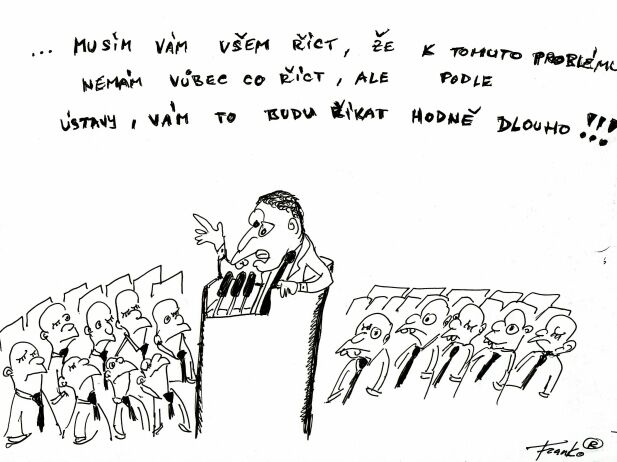 ... MUSÍM VÁM VŠEM ŘÍCT, ŽE K TOMUTO PROBLÉMU
NEMÁM VŮBEC CO ŘÍCT, ALE PODLE
ÚSTAVY, VÁM TO BUDU ŘÍKAT HODNĚ DLOUHO!!!
Franko ®